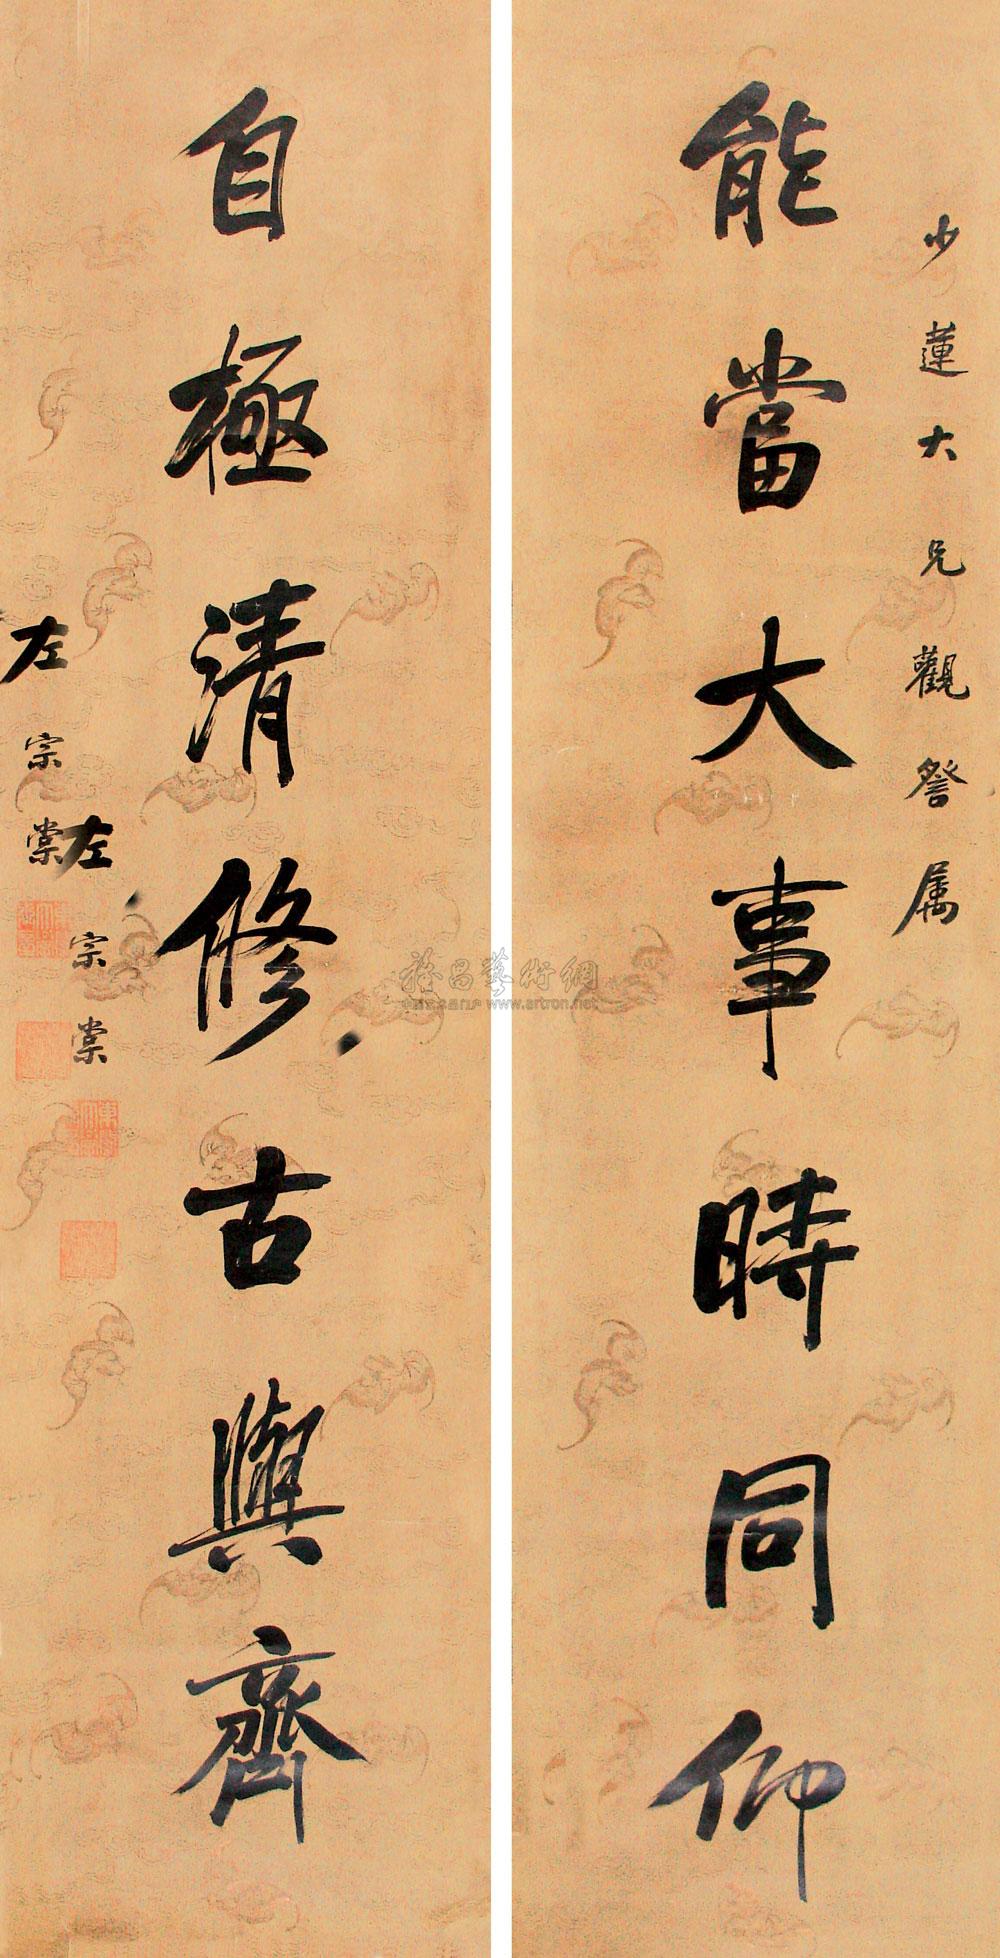 少蓮大兄觀詧属
能當大事時同仰
自極清修古與齊
左宗棠
左宗棠
www.artron.net